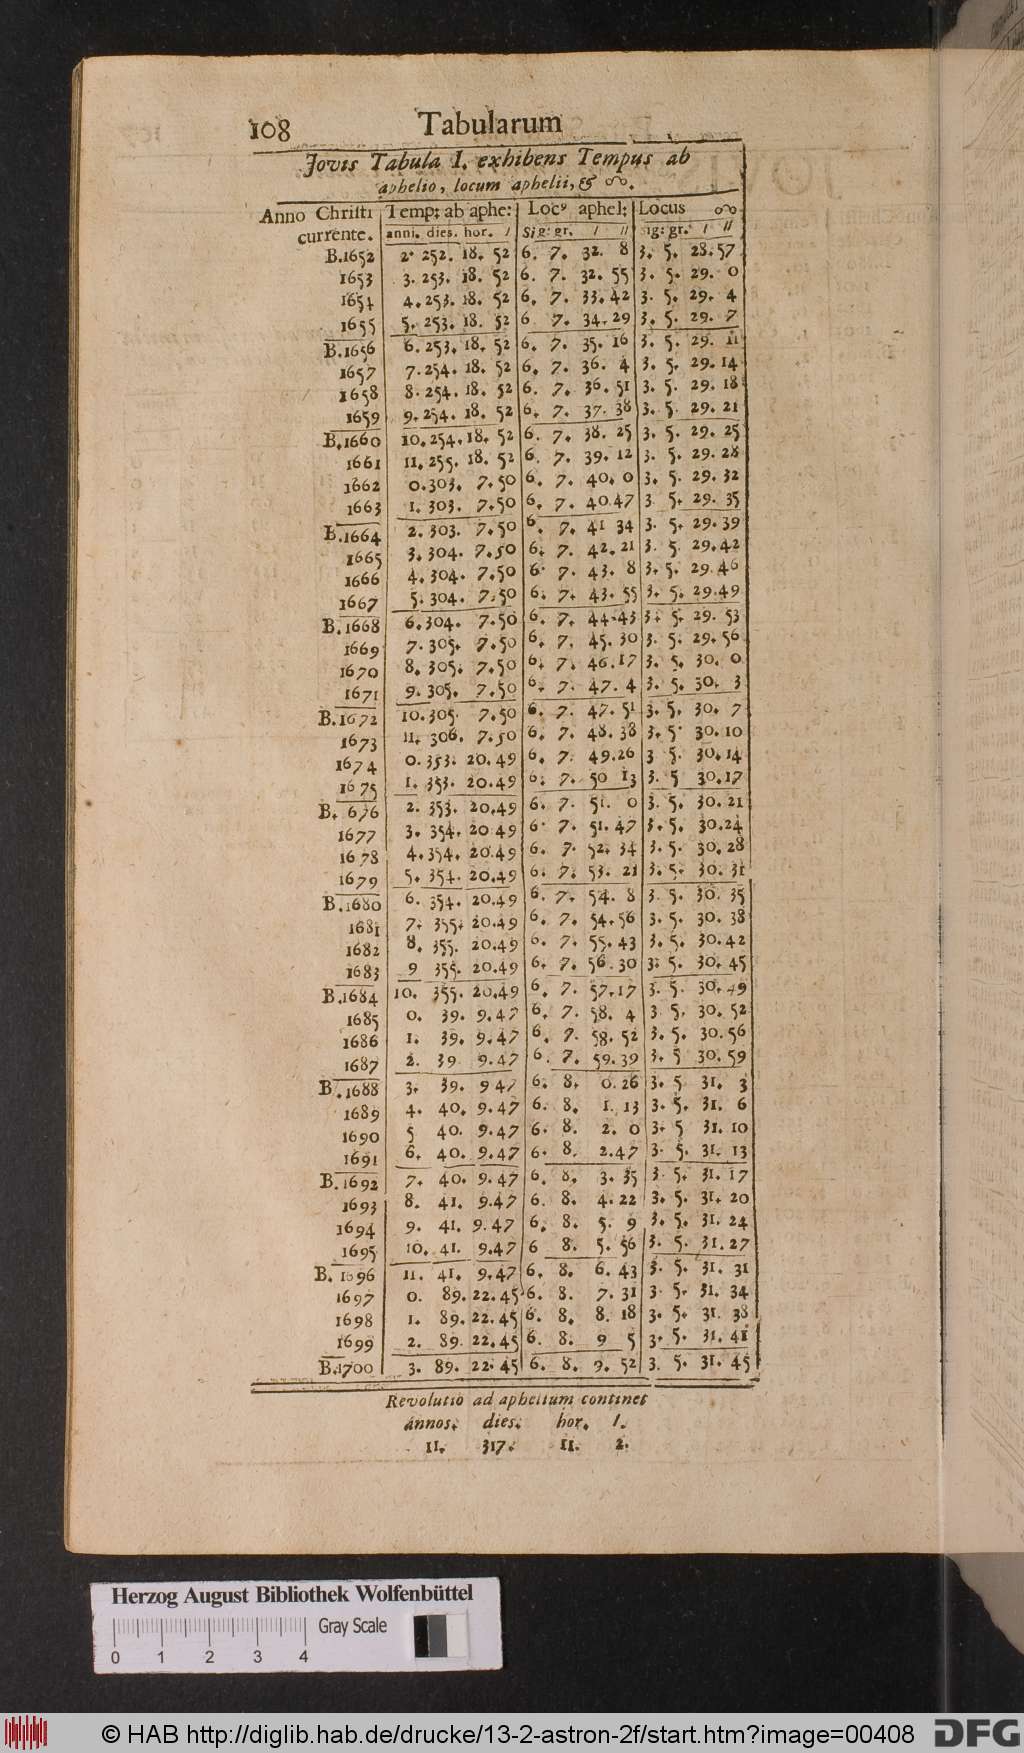 108 Tabularum
Jovis Tabula I. exhibens Tempus ab
aphelio, locum aphelii, & ☊.
Anno Christi Temp: ab aphe: Locꝰ aphel: Locus ☊
currente. anni. dies. hor. / Sig: gr. / // sig: gr. / //
B.1652 2. 252. 18. 52 6. 7. 32. 8 3. 5. 28.57
1653 3. 253. 18. 52 6. 7. 32. 55 3. 5. 29. 0
1654 4. 253. 18. 52 6. 7. 33. 42 3. 5. 29. 4
1655 5. 253. 18. 52 6 7. 34. 29 3. 5. 29. 7
B.1656 6. 253. 18. 52 6. 7. 35. 16 3. 5. 29. 11
1657 7. 254. 18. 52 6. 7. 36. 4 3. 5. 29. 14
1658 8. 254. 18. 52 6. 7. 36. 51 3. 5. 29. 18
1659 9. 254. 18. 52 6. 7. 37. 38 3. 5. 29. 21
B.1660 10. 254. 18. 52 6. 7. 38. 25 3. 5. 29. 25
1661 11. 255. 18. 52 6. 7. 39. 12 3. 5. 29. 28
1662 0. 303. 7. 50 6. 7. 40. 0 3. 5. 29. 32
1663 1. 303. 7. 50 6. 7. 40.47 3 5. 29. 35
B.1664 2. 303. 7. 50 6. 7. 41 34 3. 5. 29. 39
1665 3. 304. 7. 50 6. 7. 42. 21 3. 5. 29. 42
1666 4. 304. 7. 50 6. 7. 43. 8 3. 5. 29. 46
1667 5. 304. 7. 50 6. 7. 43. 55 3. 5. 29.49
B.1668 6. 304. 7. 50 6. 7. 44. 43 3. 5. 29. 53
1669 7. 305. 7. 50 6. 7. 45. 30 3. 5. 29. 56
1670 8. 305. 7. 50 6. 7. 46. 17 3. 5. 30. 0
1671 9. 305. 7. 50 6. 7. 47. 4 3. 5. 30. 3
B.1672 10. 305. 7. 50 6. 7. 47. 51 3. 5. 30. 7
1673 11. 306. 7. 50 6. 7. 48. 38 3. 5. 30. 10
1674 0. 353. 20. 49 6. 7. 49.26 3 5. 30. 14
1675 1. 353. 20.49 6. 7. 50 13 3. 5 30.17
B. 676 2. 353. 20.49 6. 7. 51. 0 3. 5. 30. 21
1677 3. 354. 20 49 6. 7. 51. 47 3. 5. 30.24
1678 4. 354. 20.49 6. 7. 52. 34 3. 5. 30. 28
1679 5. 354. 20.49 6. 7. 53. 21 3. 5. 30. 31
B.1680 6. 354. 20.49 6. 7. 54. 8 3. 5. 30. 35
1681 7. 355. 20.49 6. 7. 54. 56 3. 5. 30. 38
1682 8. 355. 20.49 6. 7. 55. 43 3. 5. 30. 42
1683 9 355. 20.49 6. 7. 56. 30 3. 5. 30. 45
B.1684 10. 355. 20.49 6. 7. 57.17 3. 5. 30. 49
1685 0. 39. 9. 47 6. 7. 58. 4 3 5. 30. 52
1686 1. 39. 9. 47 6. 7. 58. 52 3. 5. 30. 56
1687 2. 39 9. 47 6. 7. 59. 39 3. 5 30. 59
B.1688 3. 39. 9 47 6. 8. 0. 26 3. 5 31. 3
1689 4. 40. 9. 47 6. 8. 1. 13 3. 5. 31. 6
1690 5 40. 9. 47 6. 8. 2. 0 3. 5 31. 10
1691 6. 40. 9. 47 6. 8. 2.47 3. 5. 31. 13
B.1692 7. 40. 9. 47 6. 8. 3. 35 3. 5. 31. 17
1693 8. 41. 9.47 6. 8. 4. 22 3. 5. 31. 20
1694 9. 41. 9. 47 6. 8. 5. 9 3. 5. 31. 24
1695 10. 41. 9.47 6 8. 5. 56 3. 5. 31. 27
B. 1696 11. 41. 9. 47 6. 8. 6. 43 3. 5. 31. 31
1697 0. 89. 22. 45 6. 8. 7. 31 3. 5. 31. 34
1698 1. 89. 22. 45 6. 8. 8. 18 3. 5. 31. 38
1699 2. 89. 22. 45 6. 8. 9 5 3. 5. 31. 41
B.1700 3. 89. 22. 45 6. 8. 9. 52 3. 5. 31. 45
Revolutio ad aphelium continet
annos. dies. hor. /.
11. 317. 11. 2.
Herzog August Bibliothek Wolfenbüttel
Gray Scale
0 1 2 3 4
© HAB http://diglib.hab.de/drucke/13-2-astron-2f/start.htm?image=00408
DFG